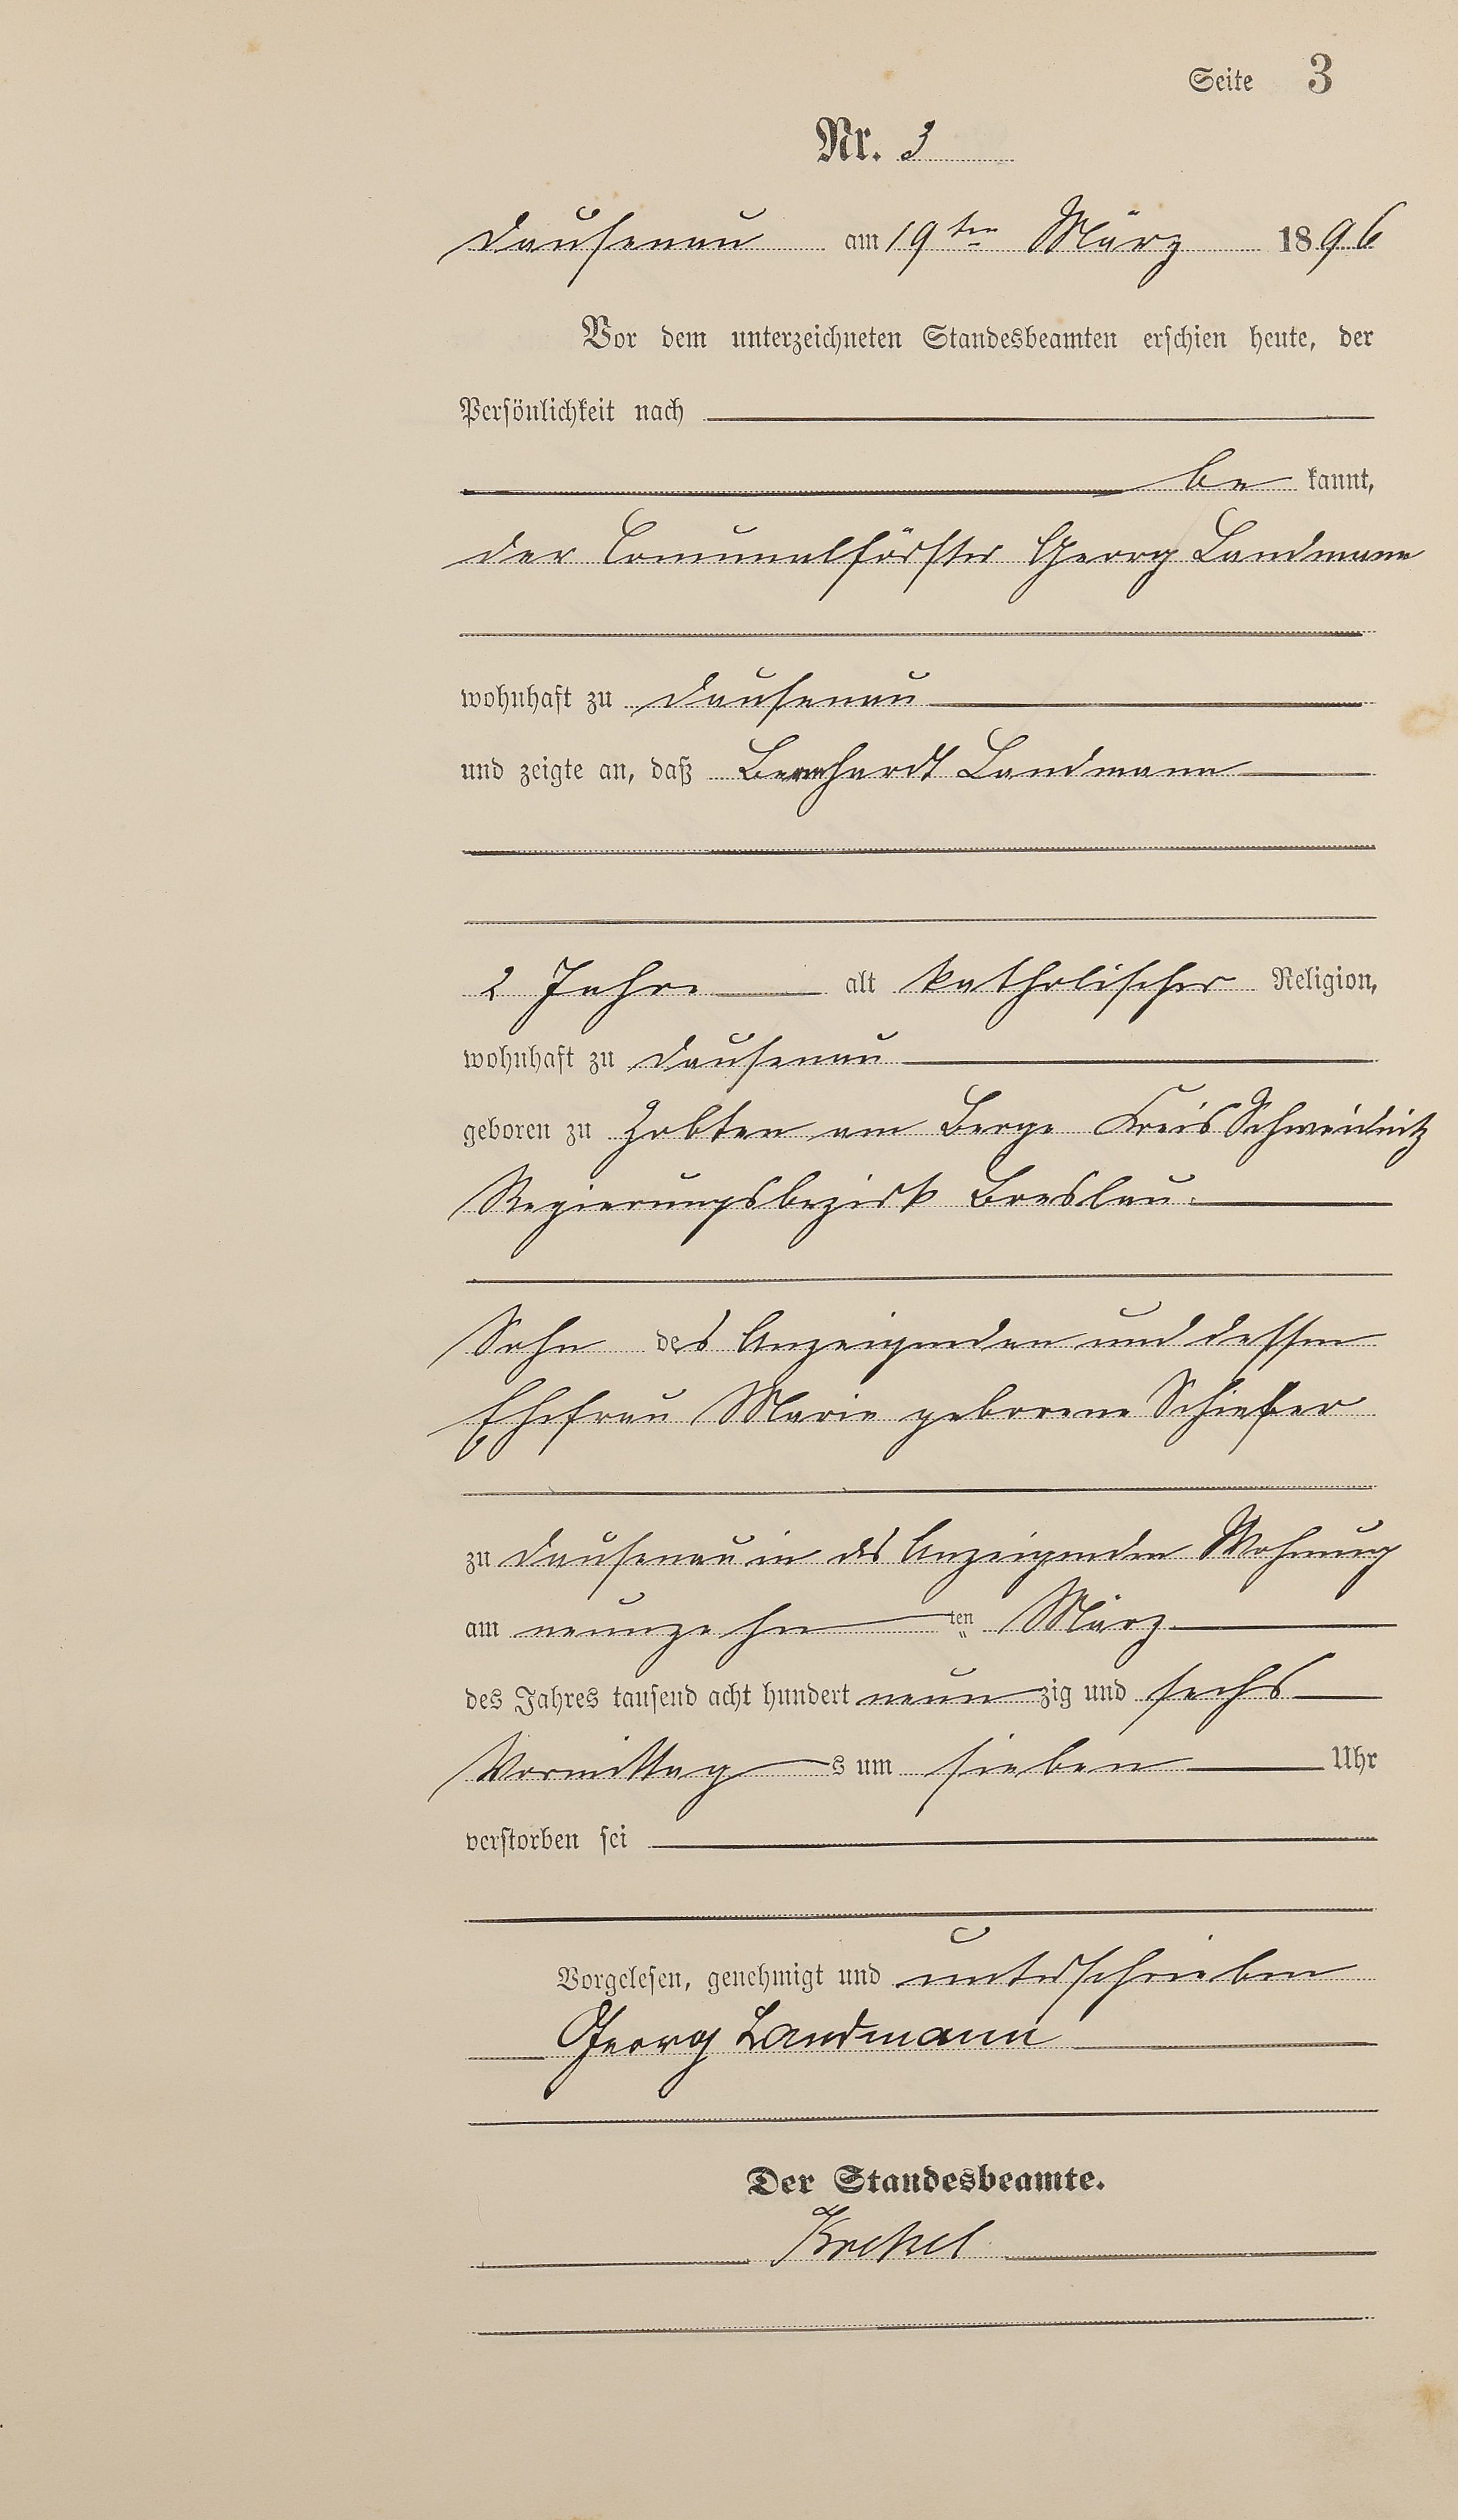 Seite 3
Nr. 3
Dausenau am 19ten März 1896
Vor dem unterzeichneten Standesbeamten erschien heute, der
Persönlichkeit nach
be kannt,
der Communalförster Georg Landmann
wohnhaft zu Dausenau
und zeigte an, daß Bernhardt Landmann
2 Jahre alt katholischer Religion,
wohnhaft zu Dausenau
geboren zu Zobten am Berge Kreis Schweidnitz
Regierungsbezirk Breslau
Sohn des Anzeigenden und dessen
Ehefrau Marie geborene Schiefer
zu Dausenau in des Anzeigenden Wohnung
am neunzehnten März
des Jahres tausend acht hundert neunzig und sechs
Vormittags um sieben Uhr
verstorben sei
Vorgelesen, genehmigt und unterschrieben
Georg Landmann
Der Standesbeamte.